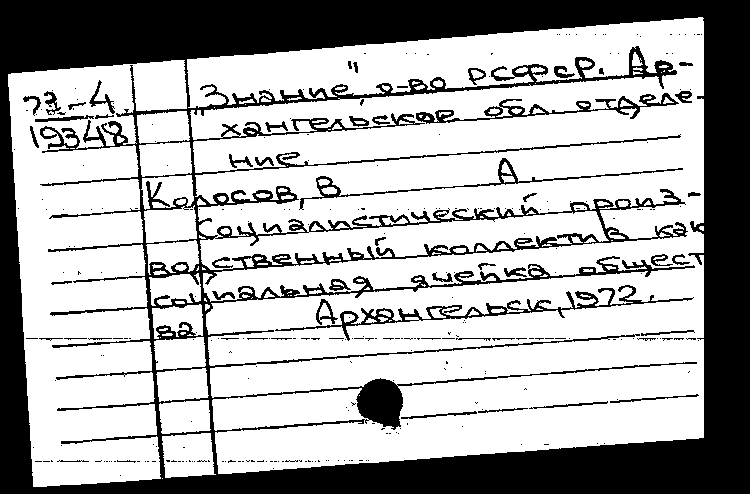 73-4
19348
„Знание", о-во РСФСР. Ар-
хангельское обл. отделе-
ние.
Колосов, В А.
Социалистический произ-
водственный коллектив как
социальная ячейка общест
ва Архангельск, 1972.